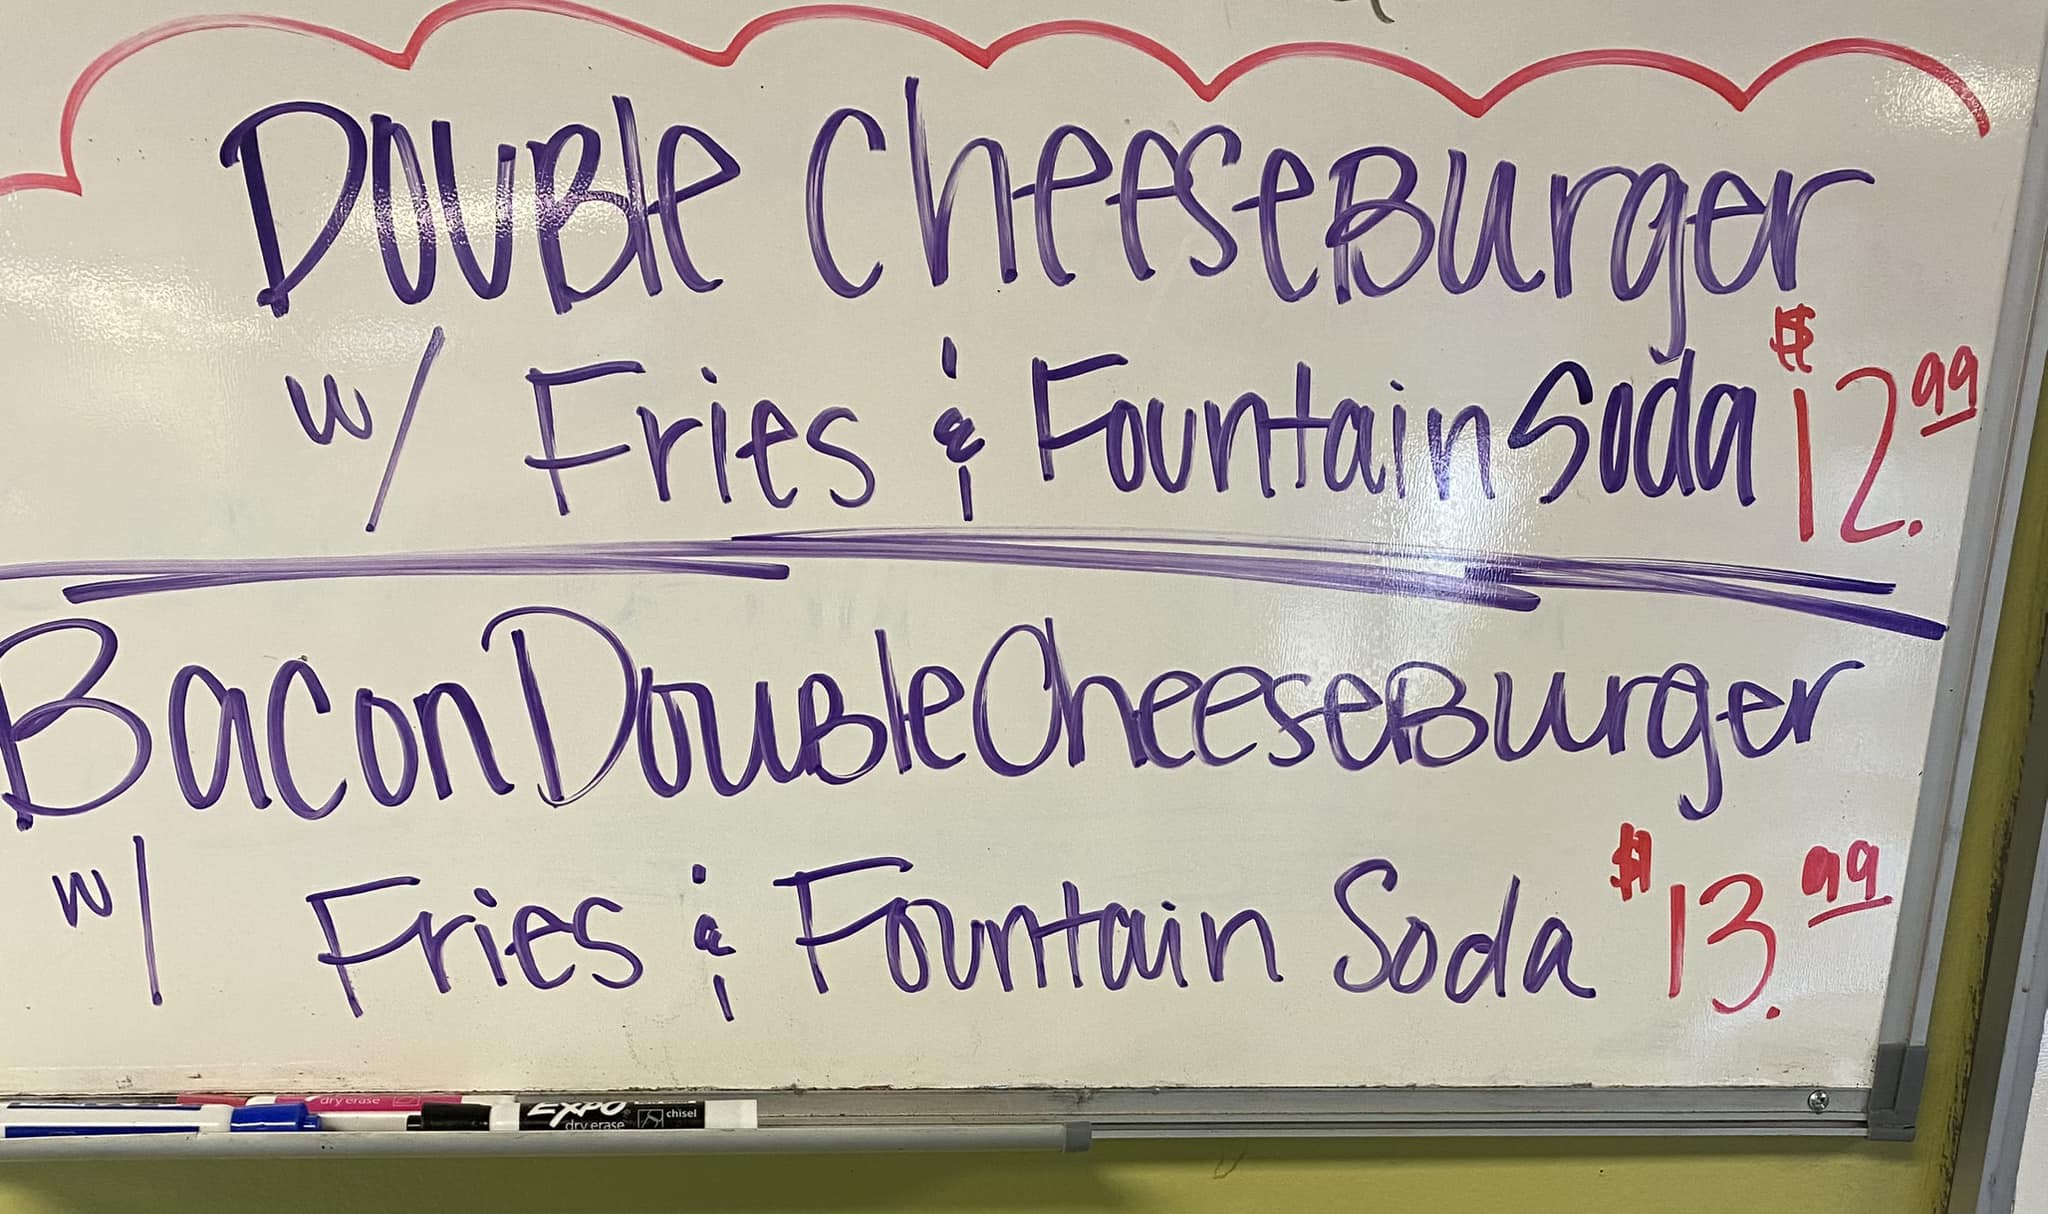 Double CheeseBurger
w/ Fries & Fountain Soda $12.99
Bacon Double CheeseBurger
w/ Fries & Fountain Soda $13.99
dry erase
EXPO chisel
dry erase